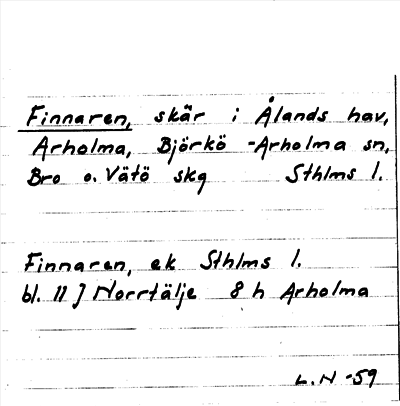 Finnaren, skär i Ålands hav,
Arholma, Björkö-Arholma sn,
Bro o. Vätö skg Sthlms l.
Finnaren, ek Sthlms l.
bl. 11 J Norrtälje 8 h Arholma
L.N-59